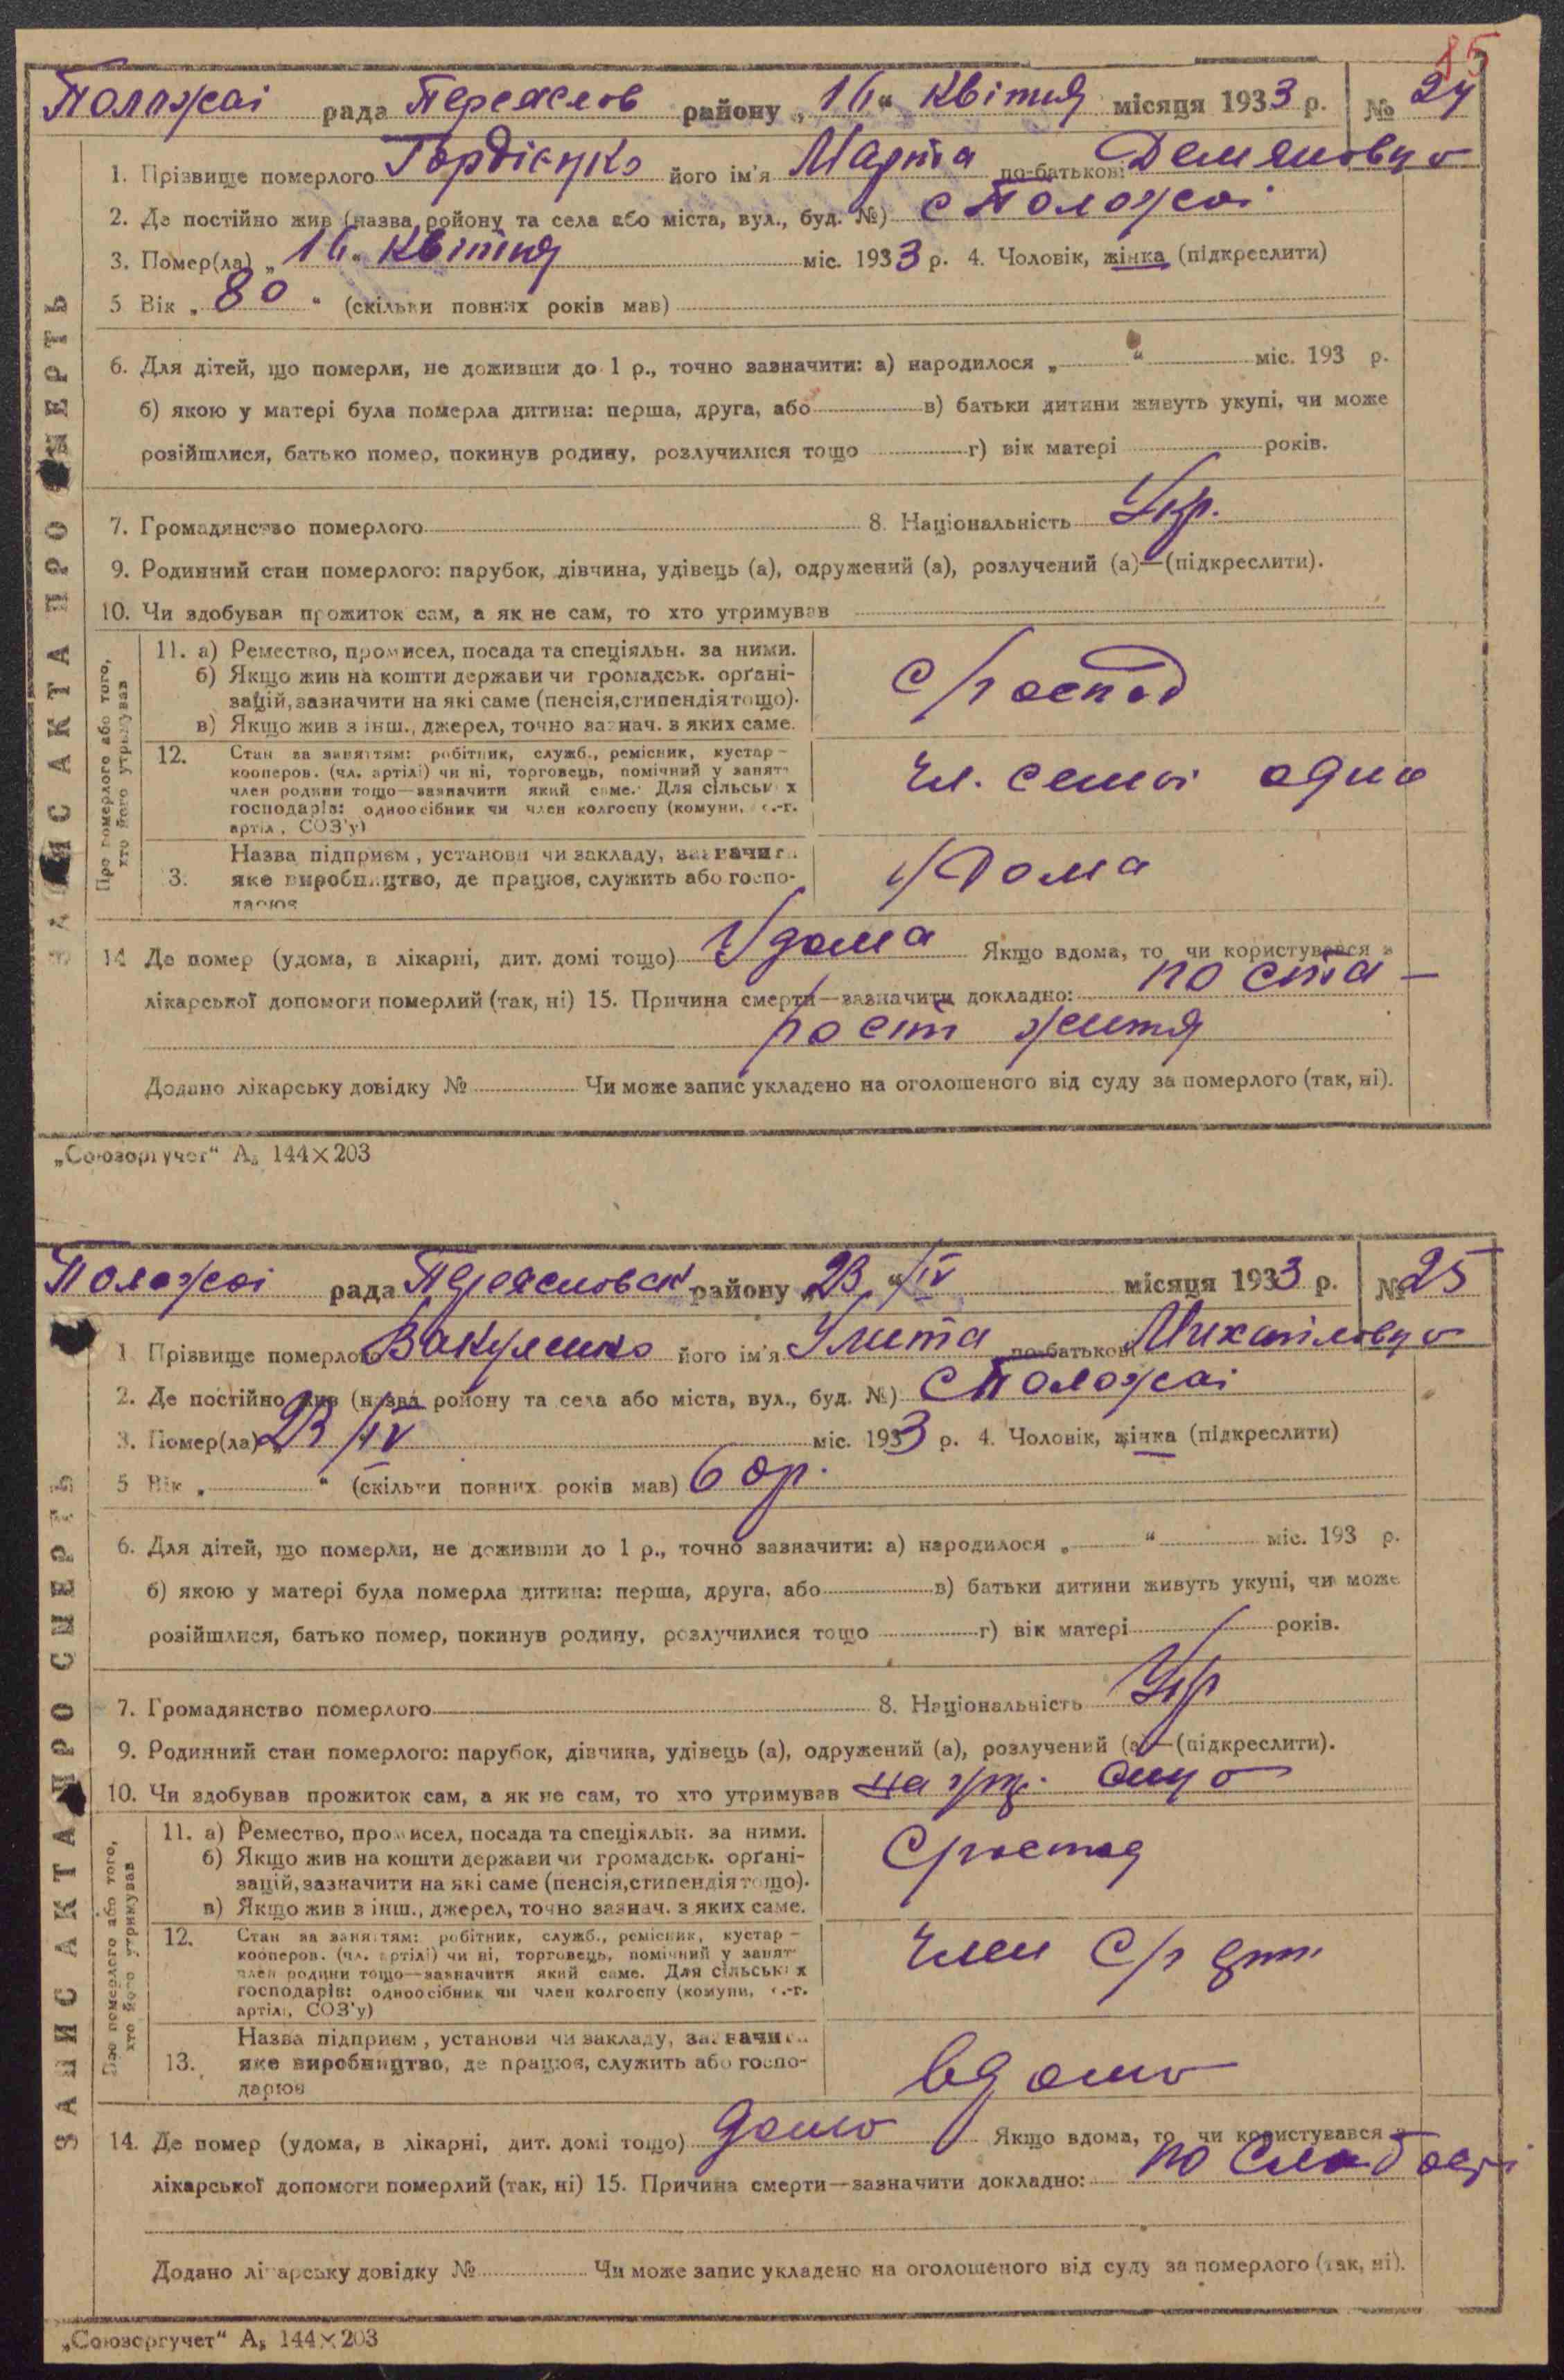 85
Положаі рада Переяслов району „16“ Квітня місяця 1933 р. № 24
ЗАПИС АКТА ПРО СМЕРТЬ
1. Прізвище померлого Гордієнко його ім'я Марта по-батькові Демяновна
2. Де постійно жив (назва ройону та села або міста, вул., буд. №) с Положаі
3. Помер(ла) „16“ Квітня міс. 1933 р. 4. Чоловік, жінка (підкреслити)
5 Вік „80“ (скільки повних років мав)
6. Для дітей, що померли, не доживши до 1 р., точно зазначити: а) народилося „ “ міс. 193 р.
б) якою у матері була померла дитина: перша, друга, або в) батьки дитини живуть укупі, чи може
розійшлися, батько помер, покинув родину, розлучилися тощо г) вік матері років.
7. Громадянство померлого 8. Національність Укр.
9. Родинний стан померлого: парубок, дівчина, удівець (а), одружений (а), розлучений (а)—(підкреслити).
10. Чи здобував прожиток сам, а як не сам, то хто утримував
Про померлого або того, хто його утримував
11. а) Ремество, промисел, посада та спеціяльн. за ними.
б) Якщо жив на кошти держави чи громадськ. орґані-
зацій, зазначити на які саме (пенсія, стипендія тощо).
в) Якщо жив з інш., джерел, точно зазнач. з яких саме.
с/господ
12. Стан за заняттям: робітник, служб., ремісник, кустар –
кооперов. (чл. артілі) чи ні, торговець, помічний у занятт
член родини тощо—зазначити який саме. Для сільських
господарів: одноосібник чи член колгоспу (комуни, с.-г.
артіл, СОЗ'у)
Чл. семьі одно
Назва підприєм, установи чи закладу, зазначити
3. яке виробництво, де працює, служить або госпо-
дарює
Дома
14 Де помер (удома, в лікарні, дит. домі тощо) Удома Якщо вдома, то чи користувався з
лікарської допомоги померлий (так, ні) 15. Причина смерти—зазначити докладно: по ста-
рости житя
Додано лікарську довідку № Чи може запис укладено на оголошеного від суду за померлого (так, ні).
„Союзоргучет“ А₅ 144×203
Положаі рада Переясловськ району „23“ IV місяця 1933 р. № 25
ЗАПИС АКТА ПРО СМЕРТЬ
1 Прізвище померлого Вакуленко його ім'я Улита по-батькові Михайловна
2. Де постійно жив (назва ройону та села або міста, вул., буд. №) с Положаі
3. Помер(ла) 23/IV міс. 1933 р. 4. Чоловік, жінка (підкреслити)
5 Вік „ “ (скільки повних років мав) 60р.
6. Для дітей, що померли, не доживши до 1 р., точно зазначити: а) народилося „ “ міс. 193 р.
б) якою у матері була померла дитина: перша, друга, або в) батьки дитини живуть укупі, чи може
розійшлися, батько помер, покинув родину, розлучилися тощо г) вік матері років.
7. Громадянство померлого 8. Національність Укр
9. Родинний стан померлого: парубок, дівчина, удівець (а), одружений (а), розлучений (а)—(підкреслити).
10. Чи здобував прожиток сам, а як не сам, то хто утримував на
Про померлого або того, хто його утримував
11. а) Ремество, промисел, посада та спеціяльн. за ними.
б) Якщо жив на кошти держави чи громадськ. орґані-
зацій, зазначити на які саме (пенсія, стипендія тощо).
в) Якщо жив з інш., джерел, точно зазнач. з яких саме.
С/господ
12. Стан за заняттям: робітник, служб., ремісник, кустар –
кооперов. (чл. артілі) чи ні, торговець, помічний у занят
член родини тощо—зазначити який саме. Для сільських
господарів: одноосібник чи член колгоспу (комуни, с.-г.
артілі, СОЗ'у)
Член С/г
Назва підприєм, установи чи закладу, зазначити
13. яке виробництво, де працює, служить або госпо-
дарює
вдома
14. Де помер (удома, в лікарні, дит. домі тощо) дома Якщо вдома, то чи користувався з
лікарської допомоги померлий (так, ні) 15. Причина смерти—зазначити докладно: по слабості
Додано лікарську довідку № Чи може запис укладено на оголошеного від суду за померлого (так, ні).
„Союзоргучет“ А₅ 144×203